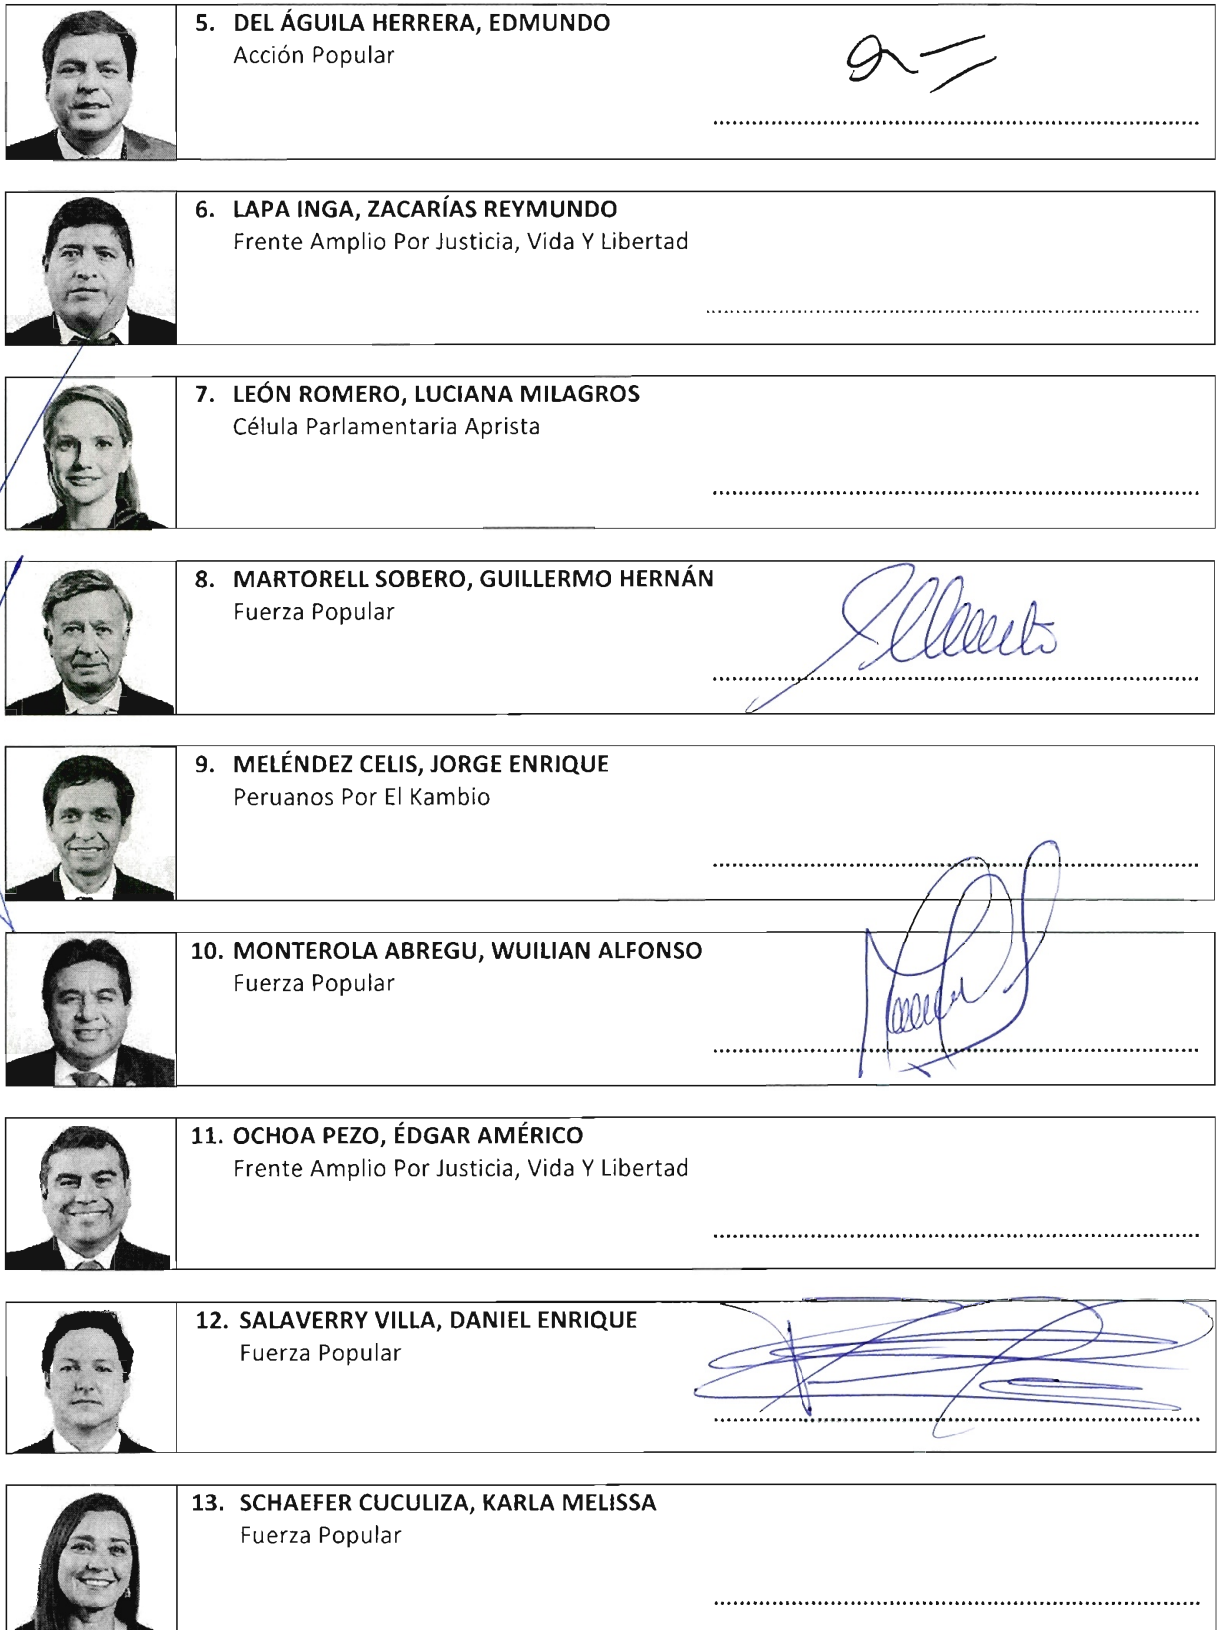 5. DEL ÁGUILA HERRERA, EDMUNDO
Acción Popular
6. LAPA INGA, ZACARÍAS REYMUNDO
Frente Amplio Por Justicia, Vida Y Libertad
7. LEÓN ROMERO, LUCIANA MILAGROS
Célula Parlamentaria Aprista
8. MARTORELL SOBERO, GUILLERMO HERNÁN
Fuerza Popular
9. MELÉNDEZ CELIS, JORGE ENRIQUE
Peruanos Por El Kambio
10. MONTEROLA ABREGU, WUILIAN ALFONSO
Fuerza Popular
11. OCHOA PEZO, ÉDGAR AMÉRICO
Frente Amplio Por Justicia, Vida Y Libertad
12. SALAVERRY VILLA, DANIEL ENRIQUE
Fuerza Popular
13. SCHAEFER CUCULIZA, KARLA MELISSA
Fuerza Popular